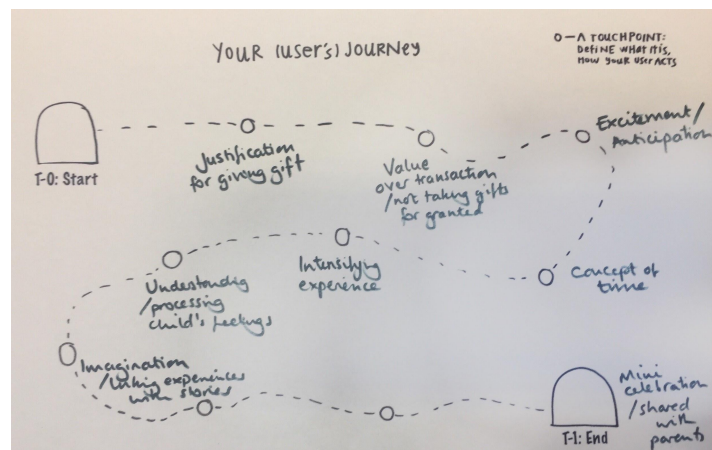 YOUR (USER'S) JOURNEY
O—A TOUCHPOINT:
DEFINE WHAT IT IS,
HOW YOUR USER ACTS
T-0: Start
Justification
for giving gift
Value
over transaction
/not taking gifts
for granted
Excitement/
Anticipation
Concept of
time
Intensifying
experience
Understanding
/processing
child's feelings
Imagination
/linking experiences
with stories
T-1: End
Mini
celebration
/shared
with
parents